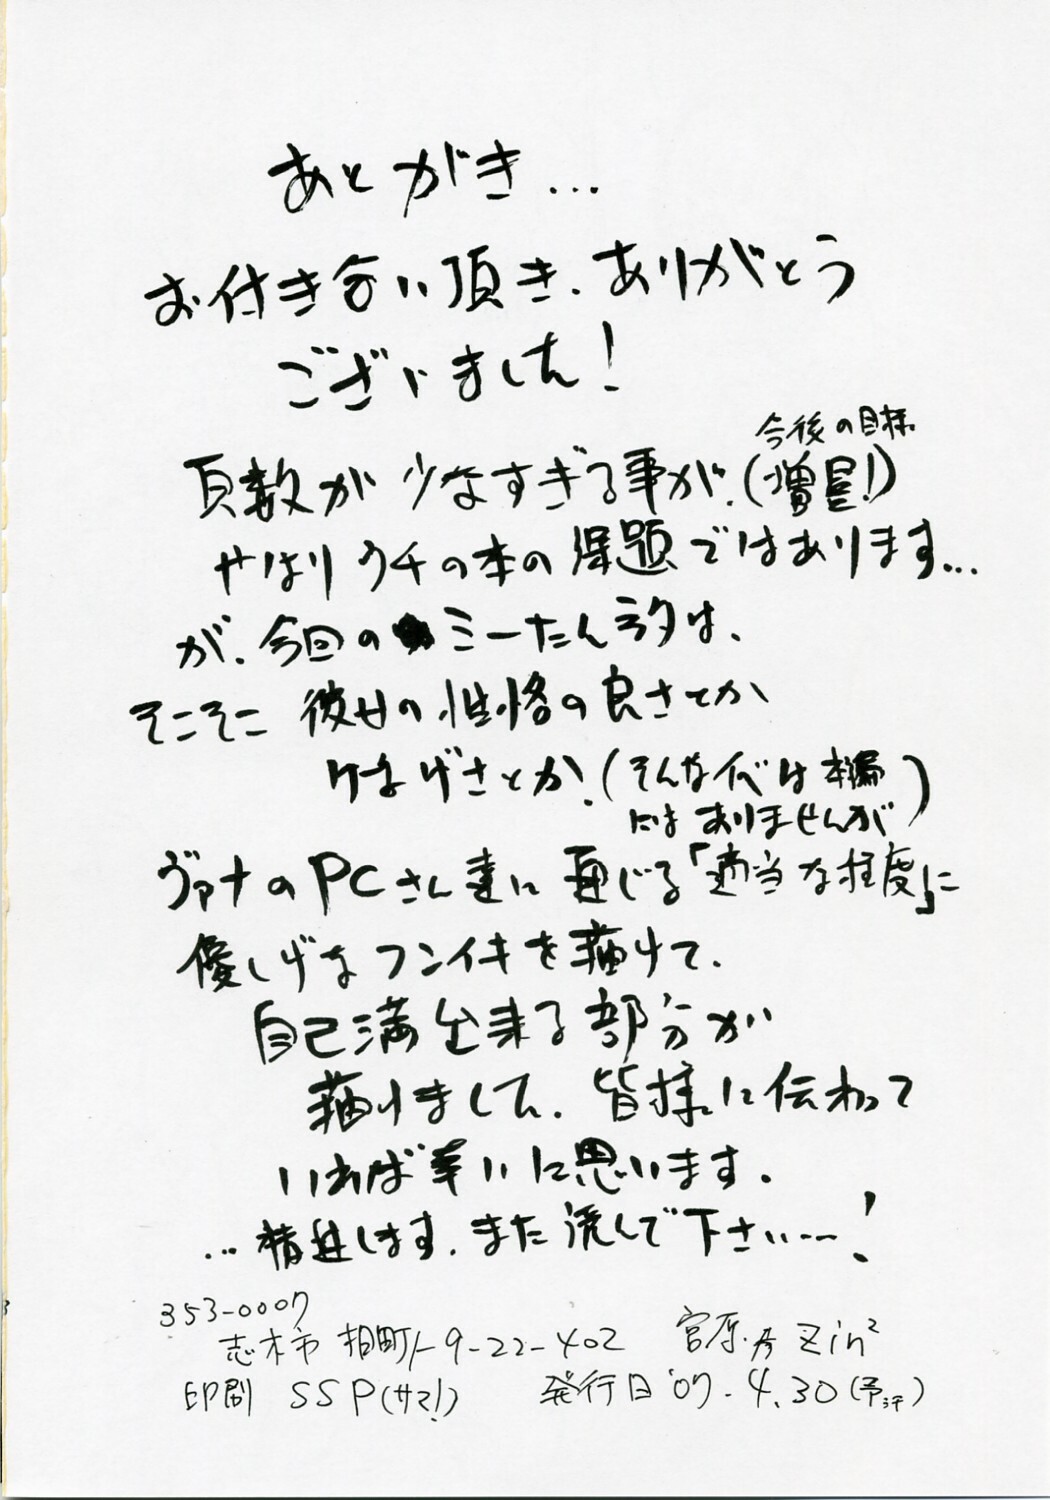 あとがき…
お付き合い頂き、ありがとう
ございました!
今後の目標
頁数が少なすぎる事が、(増量!)
やはりウチの本の課題ではあります…
が、今回のミーたんネタは、
そこそこ彼女の性格の良さとか
けなげさとか、(そんなイベは本編
にはありませんが)
ヴァナのPCさん達に通じる「適当な程度」に
優しげなフンイキを描けて、
自己満出来る部分が
描けました、皆様に伝わって
いれば幸いに思います。
…精進します、また読んで下さい…!
353-0007
志木市柏町1-9-22-402 宮原歩 Zin²
印刷 SSP(サマ!) 発行日 '07.4.30(予定)